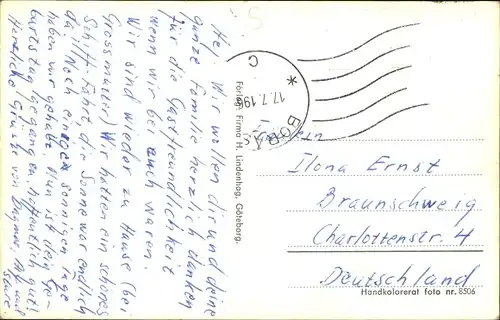 Hej! Wir wollen di und deine
ganze Familie herzlich danken
für die Gastfreundlichkeit
wenn wir bei euch waren.
Wir sind wieder zu Hause (bei
Grossmutter) Wir hatten ein schönes
Schifff-Fahrt, die Sonne war endlich
da! Noch einige sonnigen Tage
haben wir gehabt. Nun ist dein Ge-
burtstag gegangen, hoffentlich gut!
Herzliche Grüsse von Dagmar,
Förlag: Firma H. Lindenhag, Göteborg.
C
* BORÅ
17.7.196
Ilona Ernst
Braunschweig
Charlottenstr. 4
Deutschland
Handkolorerat foto nr. 8506